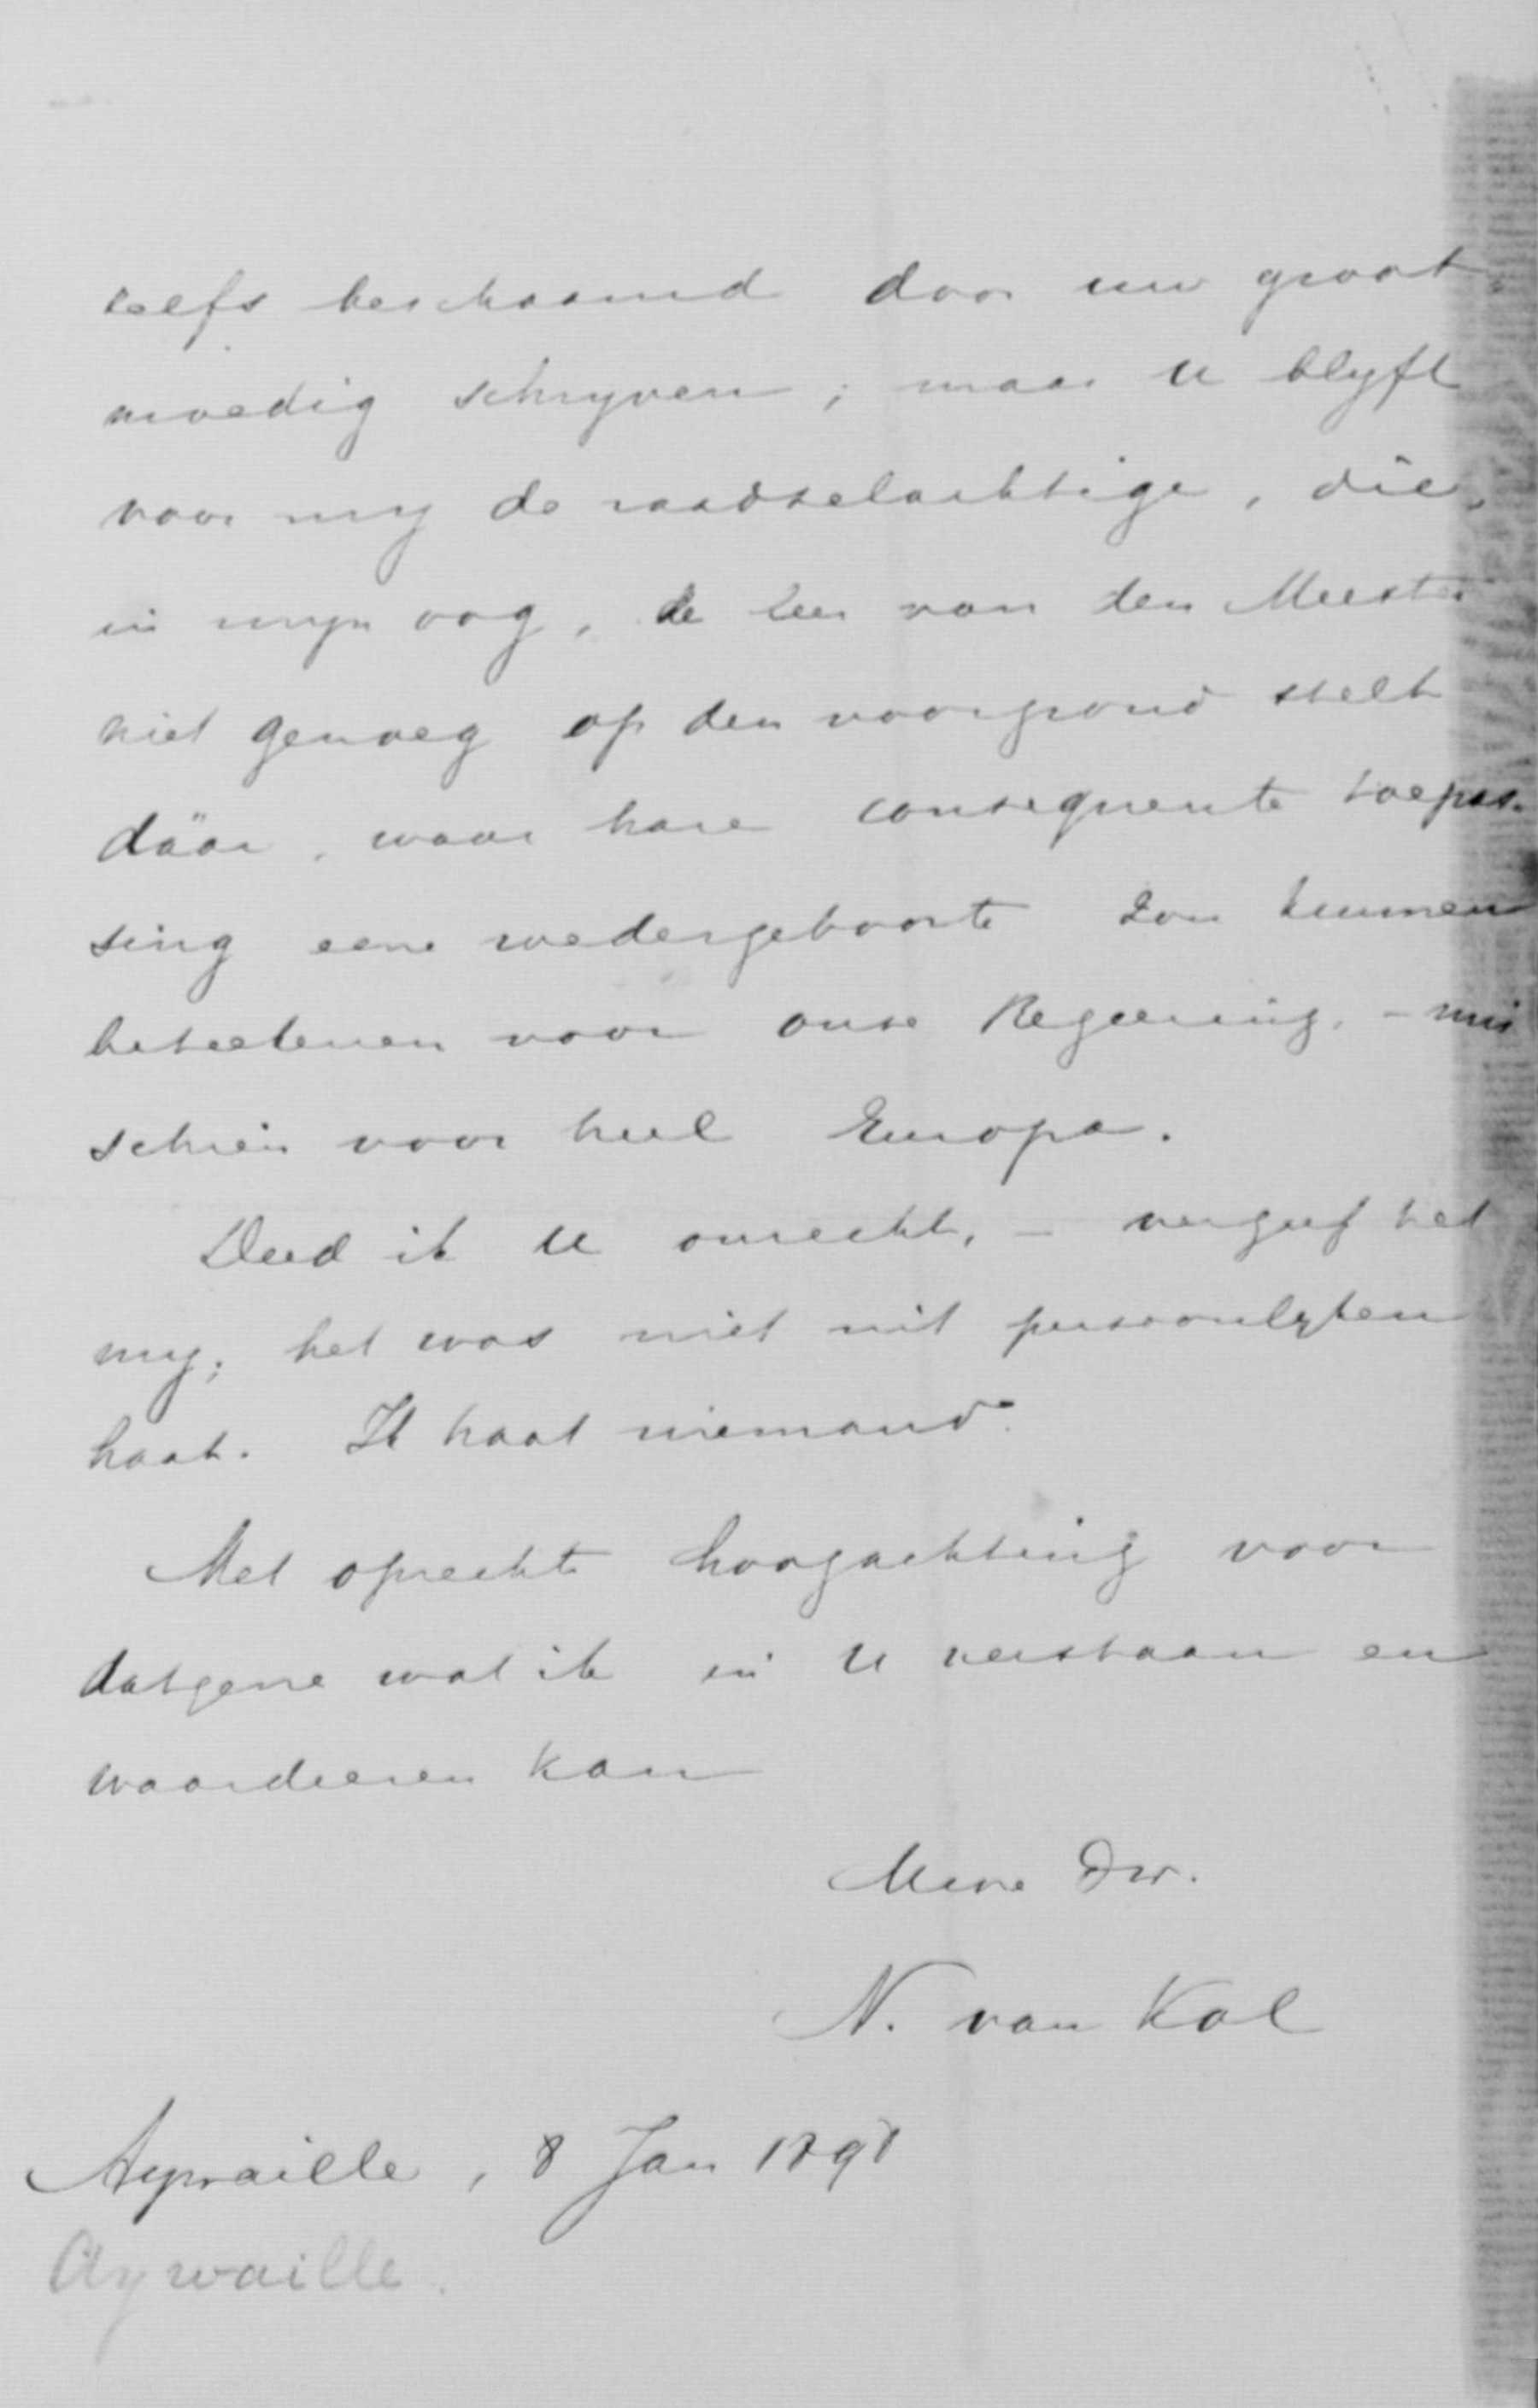 zelfs beschaamd door uw groot-
moedig schryven; maar U blyft
voor my de raadselachtige, die,
in myn oog, de leer van den Meester
niet genoeg op den voorgrond stelt
dáár, waar hare consequente toepas-
sing eene wedergeboorte zou kunnen
beteekenen voor onze Regeering, - mis
schien voor heel Europa.
Deed ik U onrecht, - vergeef het
my; het was niet uit persoonlyken
haat. Ik haat niemand.
Met oprechte hoogachting voor
datgene wat ik in U verstaan en
waardeeren kan
Uwe Dw.
N. van Kol
Aywaille, 8 Jan 1898
Aywaille.